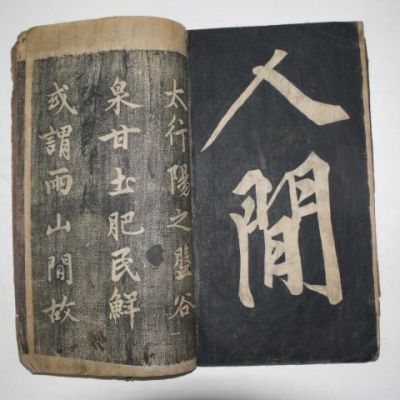 人閒
太行陽之盤谷
泉甘土肥民鮮
或謂兩山間故